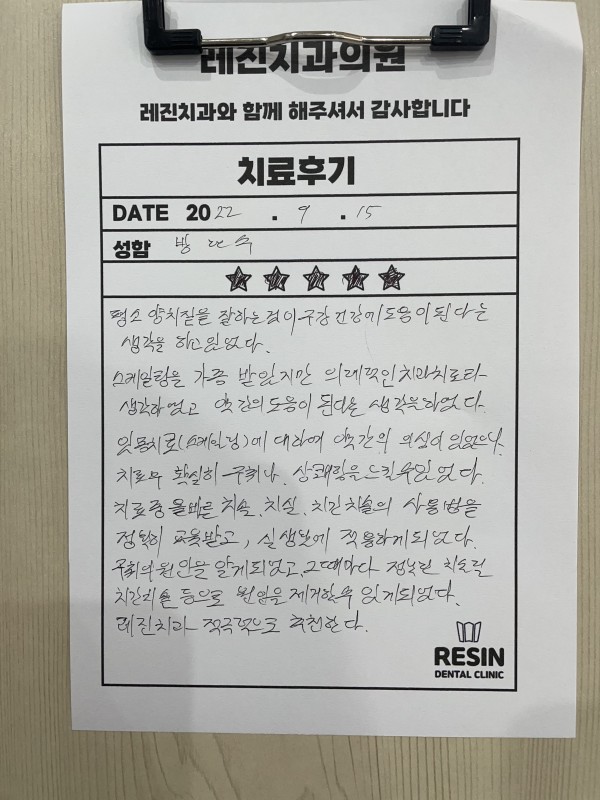 레진치과의원
레진치과와 함께 해주셔서 감사합니다
치료후기
DATE 2022 . 9 . 15
성함 방
평소 양치질을 잘하는것이 구강건강에 도움이 된다는
생각을 하고 있었다.
스케일링을 가끔 받았지만 의례적인 치과치료라
생각하였고 약간의 도움이 된다는 생각을 하였다.
잇몸치료(스케일링)에 대하여 약간의 의심이 있었으나
치료후 확실히 구취나, 상쾌함을 느낄수 있었다.
치료중 올바른 치솔, 치실, 치간치솔의 사용법을
정확히 교육받고, 실생활에 적용하게 되었다.
구취의 원인을 알게되었고, 그때마다 정확한 치솔질
치간치솔 등으로 원인을 제거할수 있게되었다.
레진치과 적극적으로 추천한다.
RESIN
DENTAL CLINIC